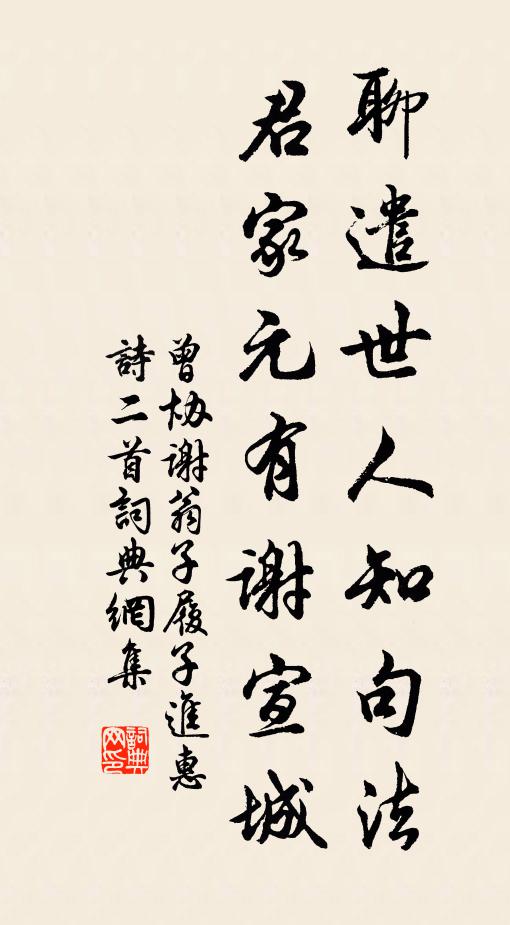 聊遣世人知句法
君家元有謝宣城
曾協謝翁子履子進惠
詩二首詞典網集
詞典
网印